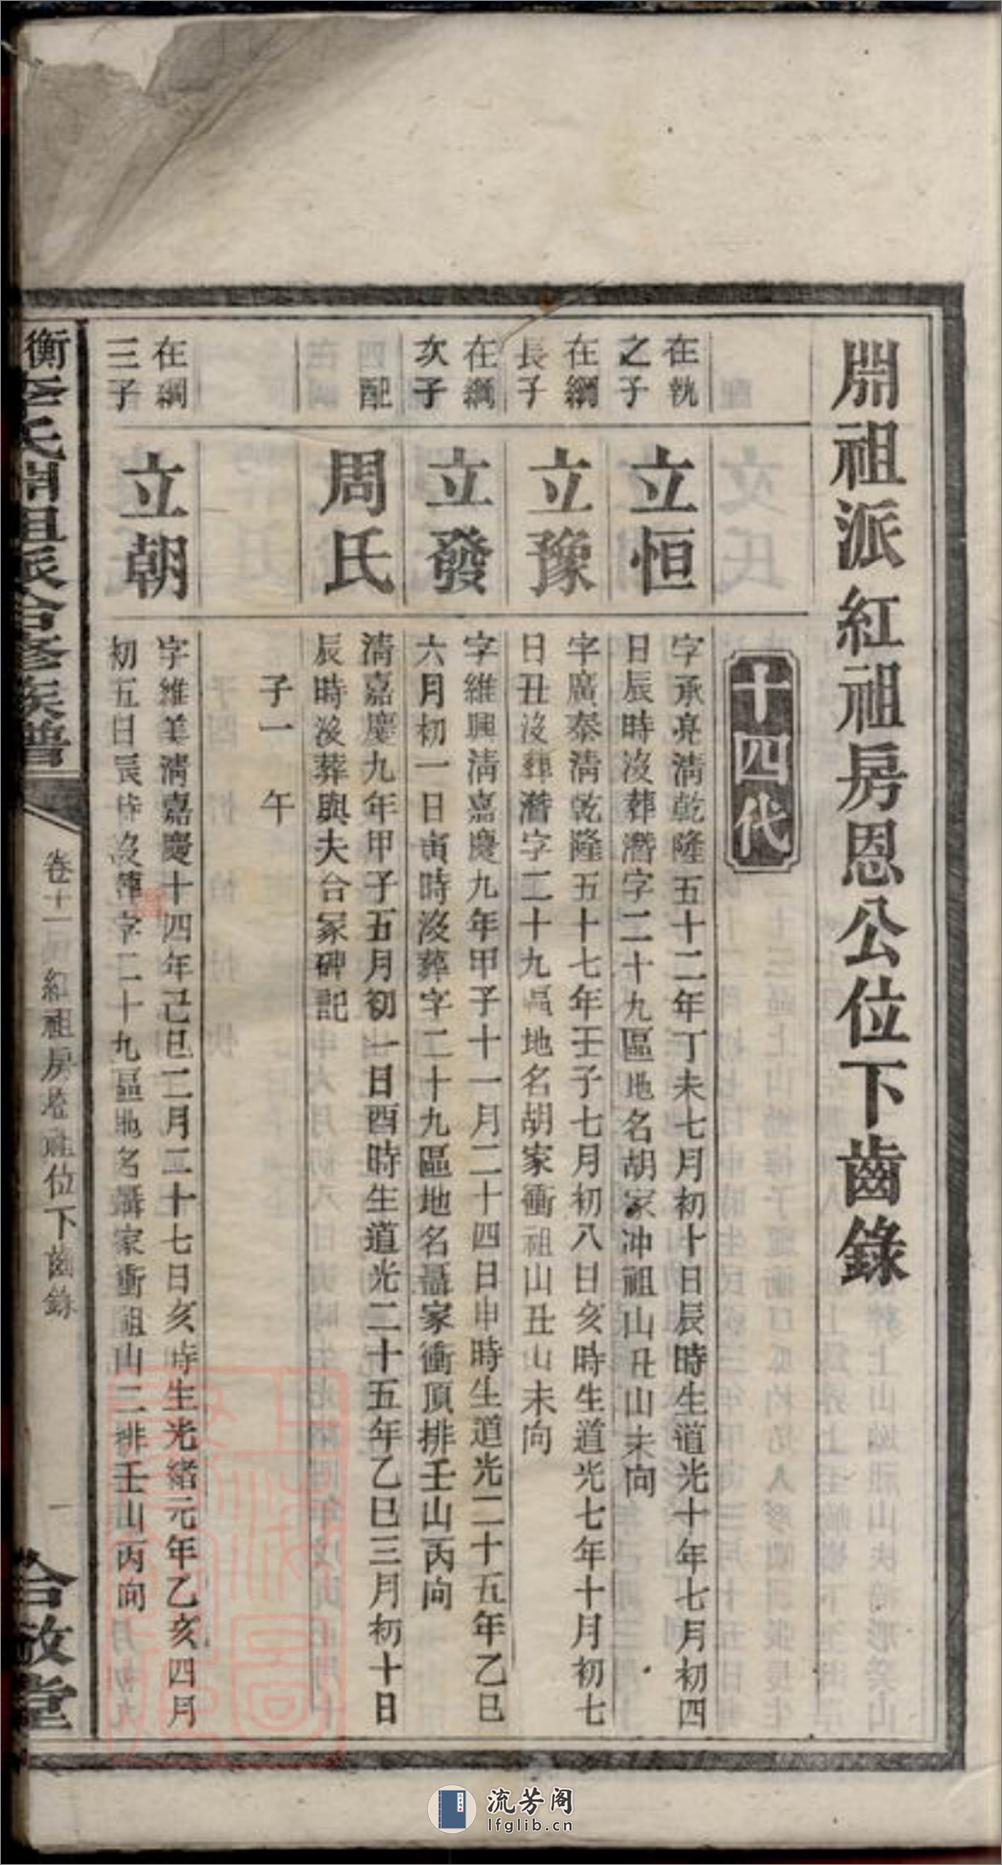 開祖派紅祖房恩公位下齒錄
十四代
在執
之子
立恒
字承亮清乾隆五十二年丁未七月初十日辰時生道光十年七月初四
日辰時沒葬潛字二十九區地名胡家冲祖山丑山未向
在綱
長子
立豫
字廣泰清乾隆五十七年壬子七月初八日亥時生道光七年十月初七
日丑沒葬潛字二十九區地名胡家衝祖山丑山未向
在綱
次子
立發
字維興清嘉慶九年甲子十一月二十四日申時生道光二十五年乙巳
六月初一日寅時沒葬字二十九區地名聶家衝頂排壬山丙向
配
周氏
清嘉慶九年甲子五月初一日酉時生道光二十五年乙巳三月初十日
辰時沒葬與夫合冢碑記
子一 午
在綱
三子
立朝
字維美清嘉慶十四年己巳二月二十七日亥時生光緒元年乙亥四月
初五日辰時沒葬字二十九區地名聶家衝祖山二排壬山丙向
衡 李氏開祖派合修族譜
卷十一 紅祖房 位下齒錄
一
合敬堂
流芳阁
lfglib.cn